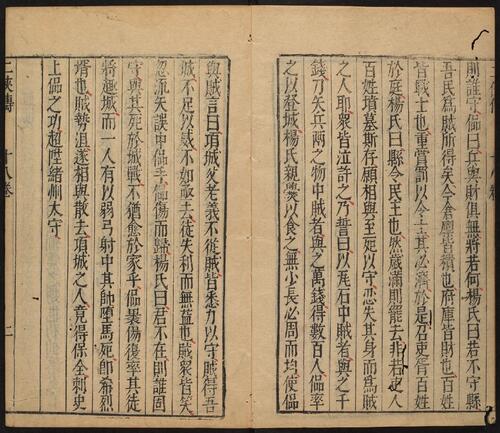 則誰守侃曰兵與財俱無將若何楊氏曰若不守縣
吾民爲賊所得矣今倉廩皆積也府庫皆財也百姓
皆戰士也重賞罰以令士其必濟於是召吏胥百姓
於庭楊氏曰縣令民主也然歲滿則罷去非若吏人
百姓墳墓斯存願相與至死以守忍失其身而爲賊
之人耶衆皆泣許之乃誓曰以瓦石中賊者與之千
錢刀矢兵兩之物中賊者與之萬錢得數百人侃率
之以登城楊氏親爨以食之無少長必周而均使侃
與賊言曰項城父老義不從賊皆悉力以守賊得吾
城不足以威不如亟去徒失利而無益也賊衆皆笑
忽流矢誤中侃手侃傷而歸楊氏曰君不在則誰固
守與其死於城戰不猶愈於家乎侃裹傷復率其徒
將趨城而一人有以弱弓射中其帥墮馬死即希烈
壻也賊勢沮遂相與散去項城之人竟得保全刺史
上侃之功超陞緒州太守
十八卷
二